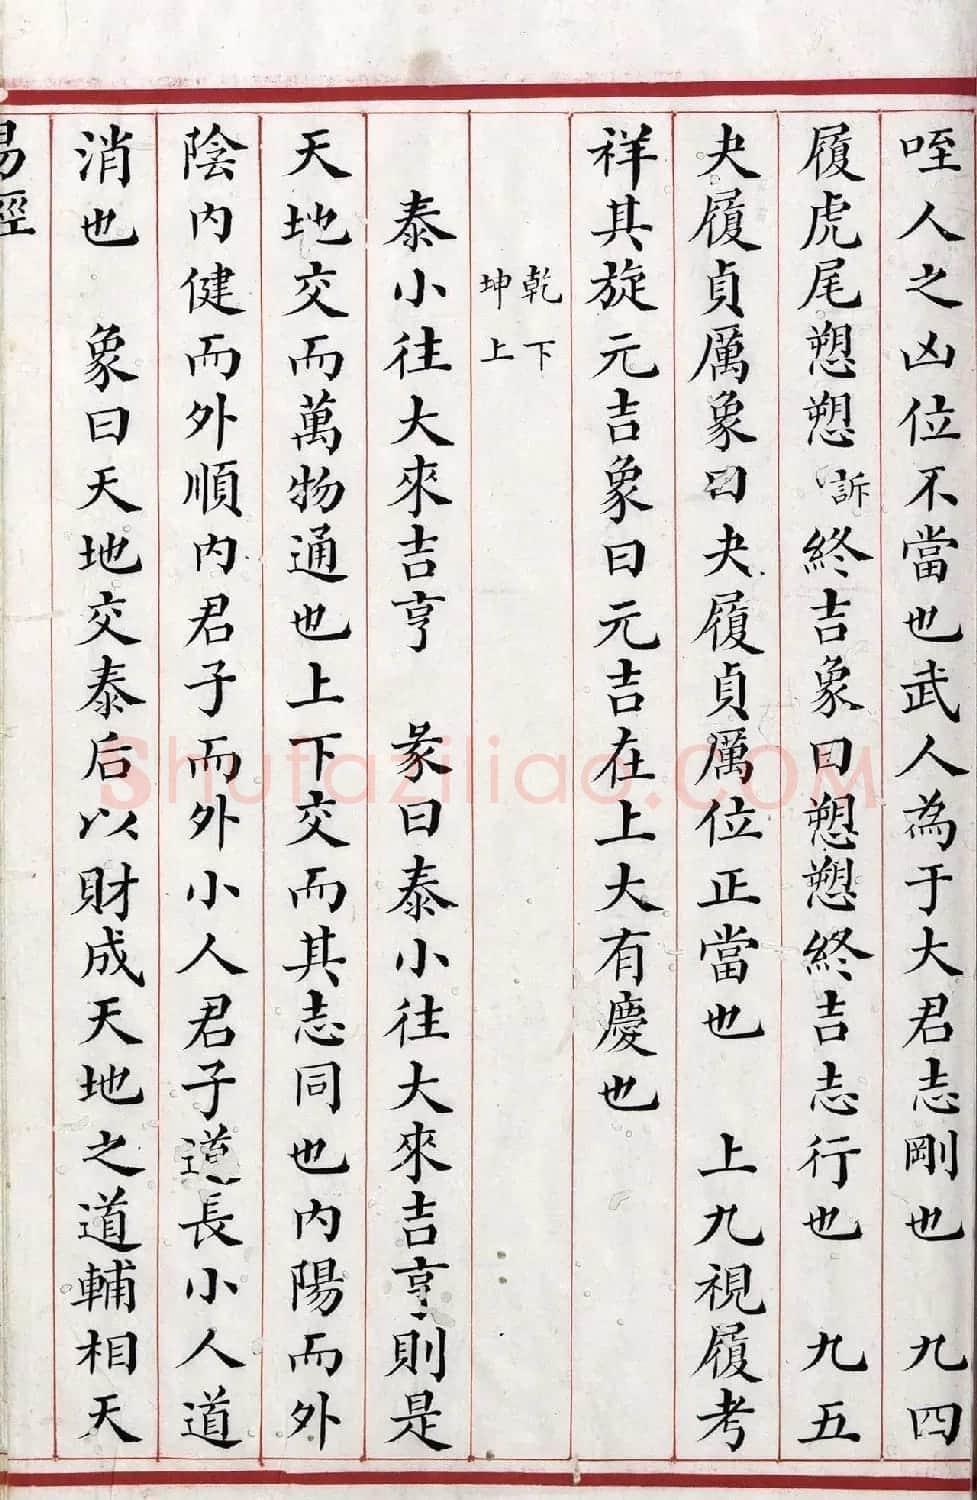 咥人之凶位不當也武人為于大君志剛也　九四
履虎尾愬愬訴終吉象曰愬愬終吉志行也　九五
夬履貞厲象曰夬履貞厲位正當也　上九視履考
祥其旋元吉象曰元吉在上大有慶也
乾下
坤上
泰小往大來吉亨　彖曰泰小往大來吉亨則是
天地交而萬物通也上下交而其志同也內陽而外
陰內健而外順內君子而外小人君子道長小人道
消也　象曰天地交泰后以財成天地之道輔相天
易經
Shufaziliao.COM